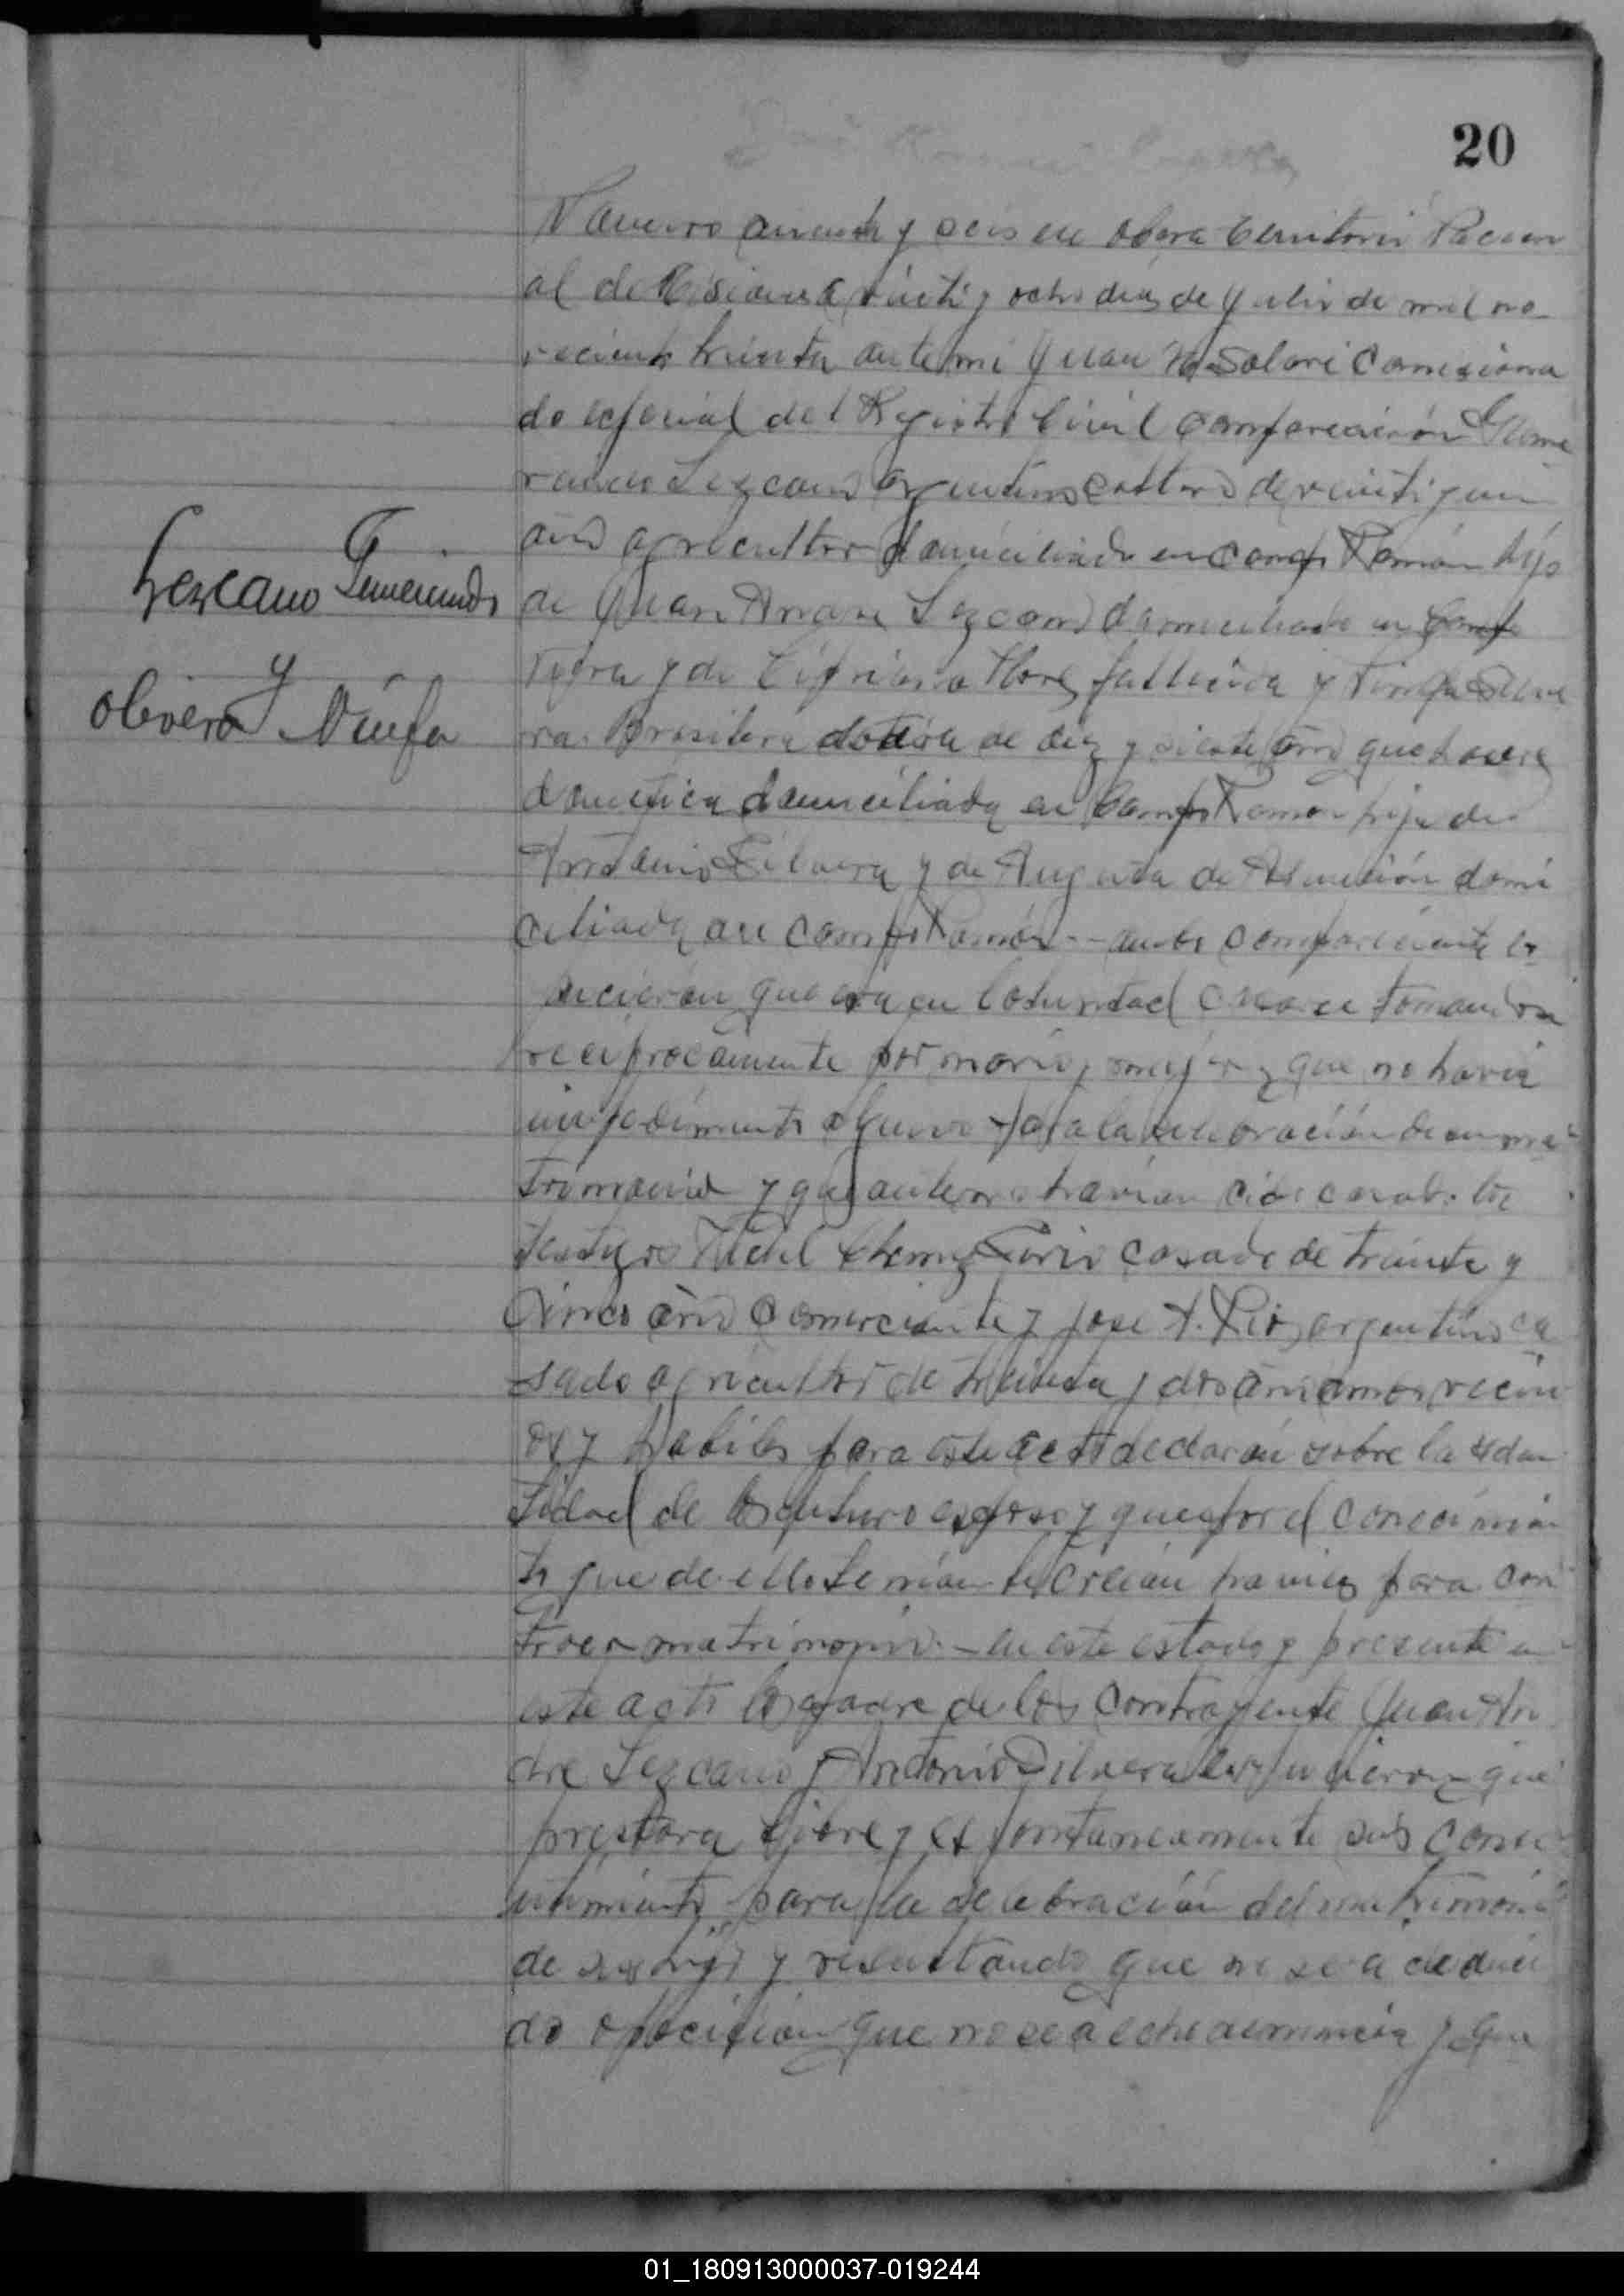 20
Numero cincuenta y seis en Obera territorio Nacion
al de Misiones a veinti y ocho dias de Julio de mil no-
vecientos treinta ante mi Juan Solari Comisiona
do especial del Registro Civil comparecieron
Lezcano argentino soltero de veinti y un
años agricultor domiciliado en campo Ramón hijo
de Juan Lezcano domiciliado en Campo
y de Cipriana Flores fallecida y Ninfa Silve
ra Brasilera soltera de diez y siete años quehacere
domestica domiciliada en Campo Ramon hija de
Antonio Silvera y de Augusta de Asunción domi
ciliada en campo Ramón -- ambos compareciente
que era su boluntad casarse tomandose
reciprocamente por marido y mujer y que no havia
impedimento alguno para la celebración de su ma
trimonio y que antes no havian sido casados. los
testigos casado de treinta y
cinco años comerciante y Jose A. argentino ca
sado agricultor de treinta y dos años ambos vecin
os y habiles para este acto declaran sobre la yden
tidad de los futuros esposos y que por el conocimien
to que de ellos tenian los creian haviles para con
traer matrimonio. - en este estado y presente en
este acto los padre de los contrayente Juan An
dre Lezcano y Antonio Silvera expusieron que
prestara libre y espontaneamente sus conse
ntimiento para la celebración del matrimonio
de sus hijos y resultando que no se a deduci
do oposición que no se a echo denuncia y que
Lezcano
y
Olivera Ninfa
01_180913000037-019244